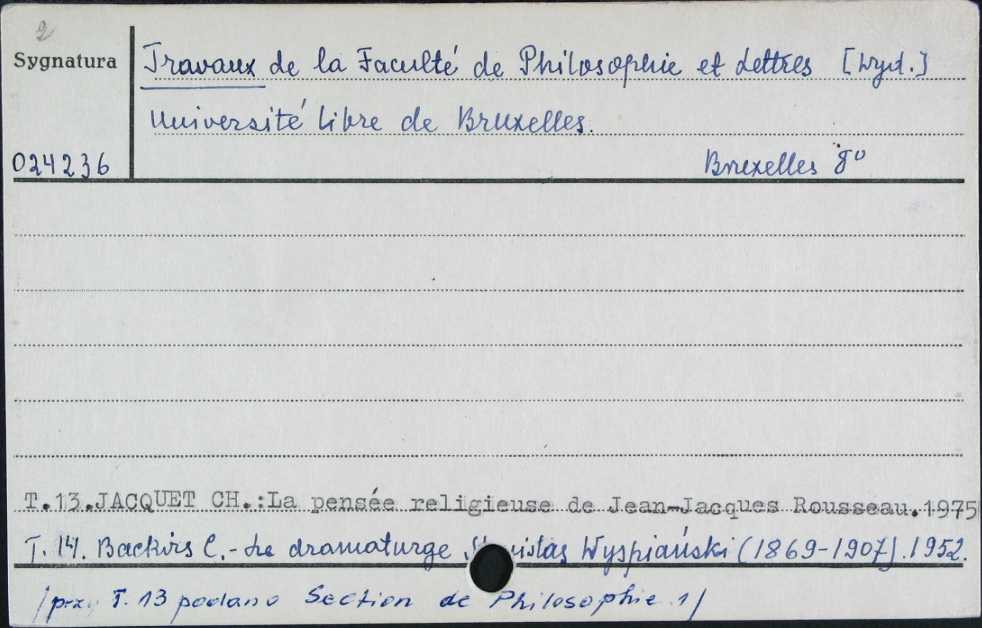 2
Sygnatura
Travaux de la Faculté de Philosophie et Lettres [Wyd.]
Université Libre de Bruxelles.
024236
Bruxelles 8°
T.13.JACQUET CH.:La pensée religieuse de Jean-Jacques Rousseau.1975
T. 14. Backvis C.- Le dramaturge Stanislas Wyspiański (1869-1907). 1952.
/przy T. 13 podano Section de Philosophie 1/